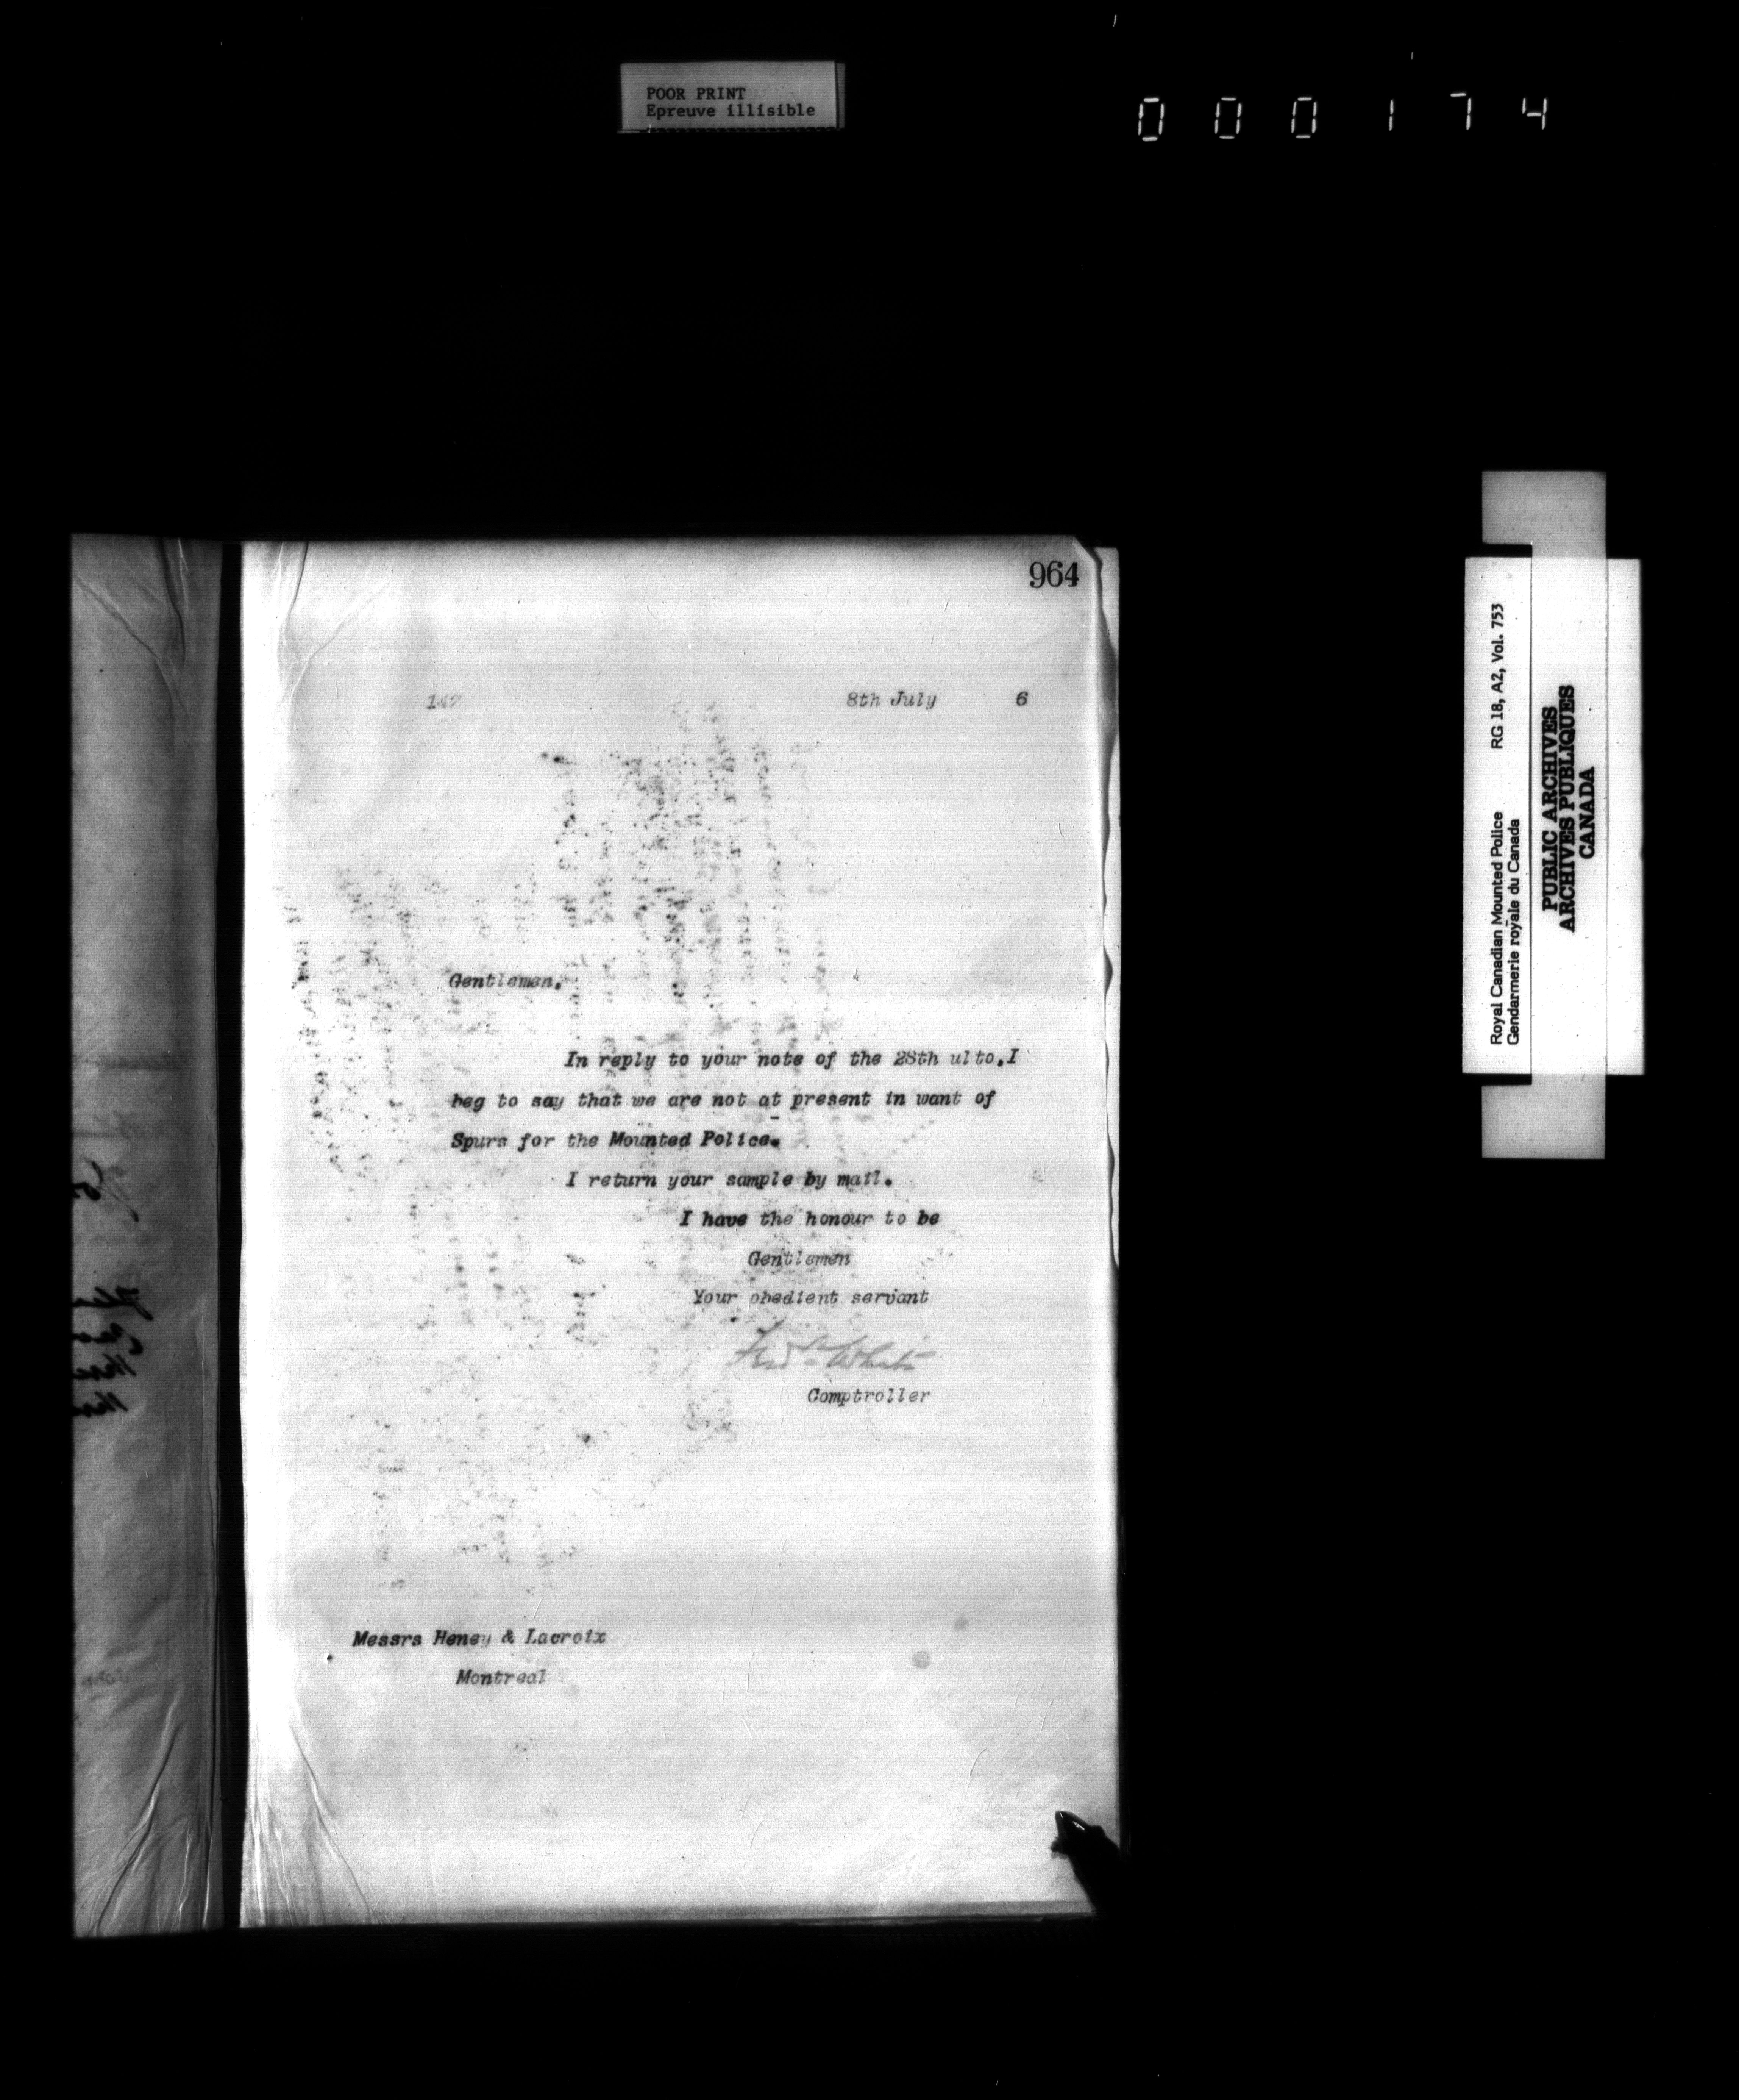 POOR PRINT
Epreuve illisible
000174
964
8th July 6
Gentlemen.
In reply to your note of the 28th ulto.I
beg to say that we are not at present in want of
Spurs for the Mounted Police.
I return your sample by mail.
I have the honour to be
Gentlemen
Your obedient servant
Fred White
Comptroller
Messrs Heney & Lacroix
Montreal
Royal Canadian Mounted Police RG 18, A2, Vol. 753
Gendarmerie royale du Canada
PUBLIC ARCHIVES
ARCHIVES PUBLIQUES
CANADA